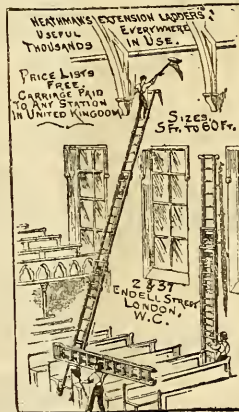 HEATHMAN'S EXTENSION LADDERS.
USEFUL EVERYWHERE
THOUSANDS IN USE.
PRICE LISTS
FREE.
CARRIAGE PAID
TO ANY STATION
IN UNITED KINGDOM
SIZES.
5 FT. TO 60 FT.
2 & 37
ENDELL STREET
LONDON,
W.C.